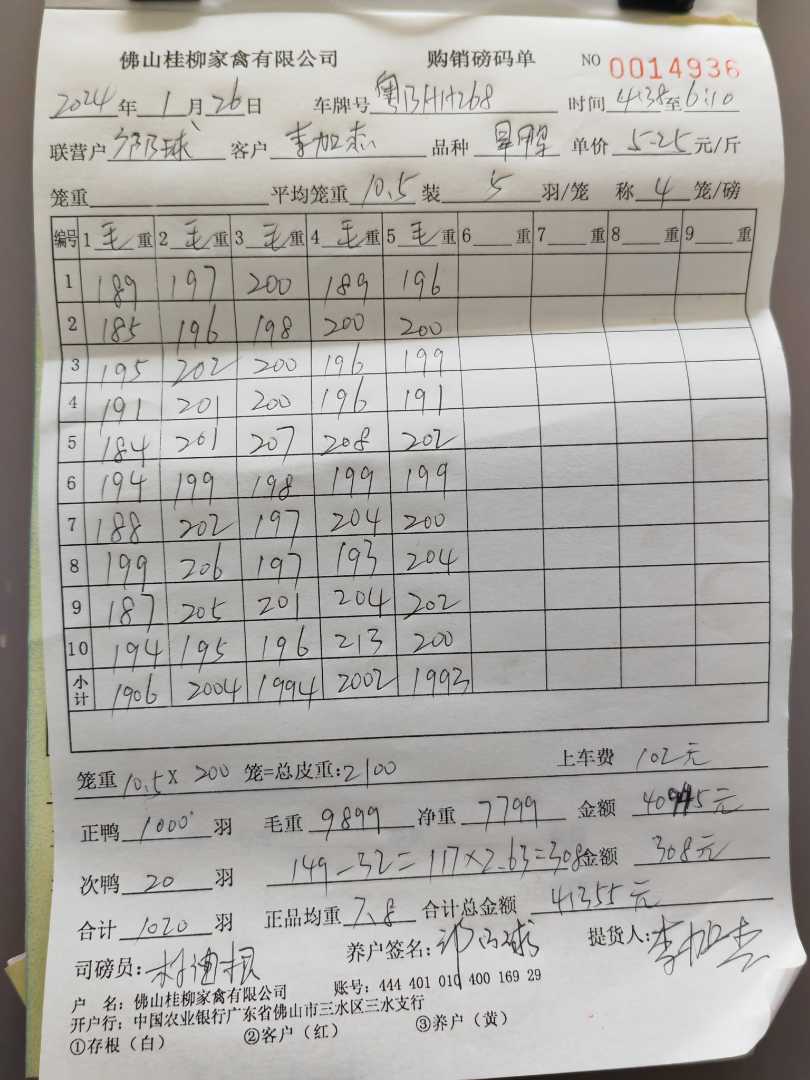 佛山桂柳家禽有限公司 购销磅码单 NO 0014936
2024年1月26日 车牌号 粤BHH268 时间 4:38至6:10
联营户 球 客户 李加杰 品种 单价 5-25 元/斤
笼重 平均笼重 10.5 装 5 羽/笼 称 4 笼/磅
编号 1 毛 重 2 毛 重 3 毛 重 4 毛 重 5 毛 重 6 重 7 重 8 重 9 重
1 189 197 200 189 196
2 185 196 198 200 200
3 195 202 200 196 199
4 191 201 200 196 191
5 184 201 207 208 202
6 194 199 198 199 199
7 188 202 197 204 200
8 199 206 197 193 204
9 187 205 201 204 202
10 194 195 196 213 200
小计 1906 2004 1994 2002 1993
笼重 10.5 X 200 笼=总皮重:2100 上车费 102元
正鸭 1000 羽 毛重 9899 净重 7799 金额 40945元
次鸭 20 羽 149-32=117×2.63=308 金额 308元
合计 1020 羽 正品均重 7.8 合计总金额 41355元
司磅员: 养户签名: 球 提货人:李加杰
户 名:佛山桂柳家禽有限公司 账号:444 401 010 400 169 29
开户行:中国农业银行广东省佛山市三水区三水支行
①存根(白) ②客户(红) ③养户(黄)